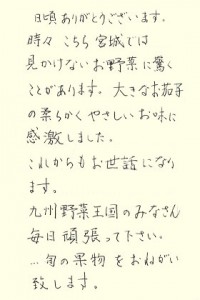 日頃ありがとうございます。
時々 こちら宮城では
見かけないお野菜に驚く
ことがあります。大きなお茄子
の柔らかくやさしいお味に
感激しました。
これからもお世話になり
ます。
九州野菜王国のみなさん
毎日頑張って下さい。
…旬の果物をおねがい
致します。